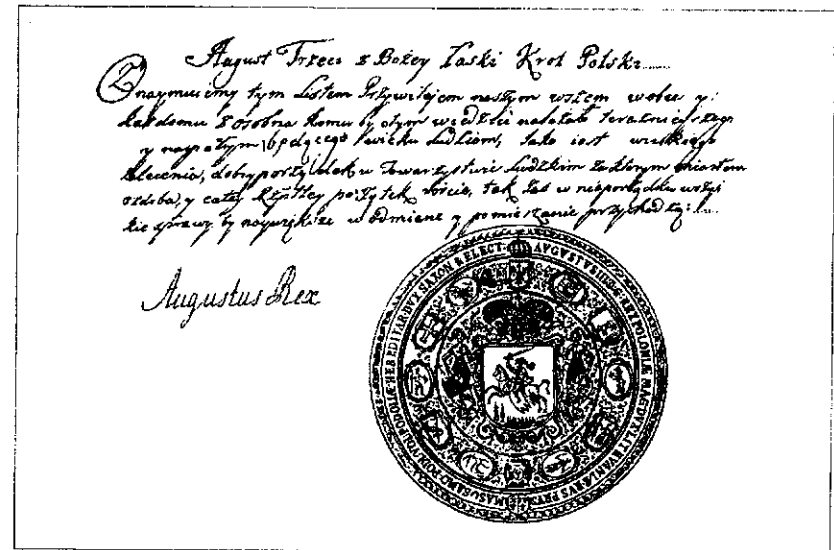 August Trzeci z Bożey Łaski Krol Polski
Oznaymuiemy tym Listem Przywileiem naszym wszem wobec y
każdemu z osobna komu by o tym wiedzieć należało teraznieyszego
y napotym będącego wieku Ludziom, iako iest wszelkiego
zlecenia, dobry porządek w Towarzystwie Ludzkim za ktorym miastom
ozdoba, y całey Rzpltey pożytek rościе, tak zaś w nieporządku wszyt
kie sprawy ty naywiększe w odmiene y pomieszanie przychodzą:
Augustus Rex
AVGVSTVS III D G REX POLONIÆ MAG DVX LITHVANIÆ RVS PRVS MAS SAM KYOV VOL POD HEREDITAR DVX SAXON & ELECT